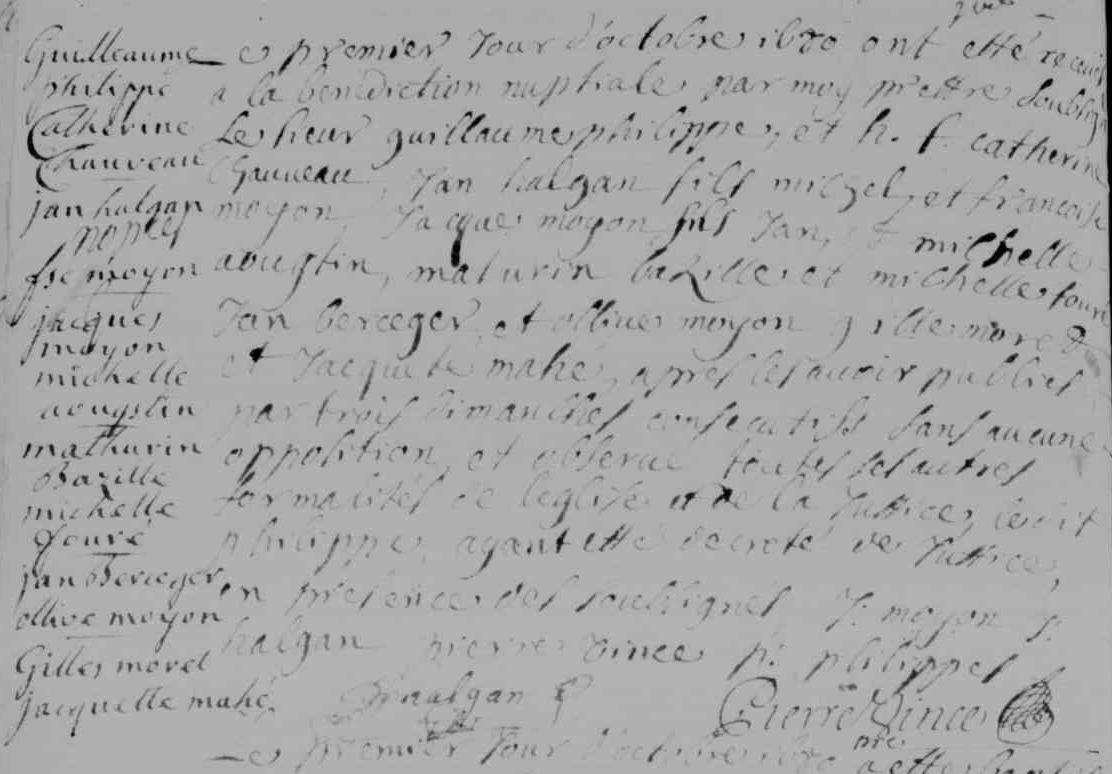 Guilleaume
philippe
Catherine
Chauveau
jan halgan
nopces
fse moyon
jacques
moyon
michelle
aougstin
mathurin
Bazille
michelle
fouré
jan Bereger
ollive moyon
Gilles morel
jacquette mahé
e premier Jour d'octobre 1670 ont etté receus
a la benediction nuptiale par moy prettre soubsig
Le sieur guillaume philippe, et h. f. catherine
Chauveau, Jan halgan fils michel, et francoise
moyon, Jacque moyon fils Jan, et michelle
aougtin, maturin bazille et michelle
Jan bereger, et ollive moyon gille morel
et Jacquete mahé, apres les avoir publies
par trois dimanches consecutifs sans aucune
opposition, et observé toutes les autres
formalités de leglise et de la Justice, ledit
philippe, ayant etté decreté de Justice,
en presence des soubsignes J. moyon J.
halgan pierre Vince p. philippes
halgan Pierre Vince
e premier Jour d'octobre 1670 a etté